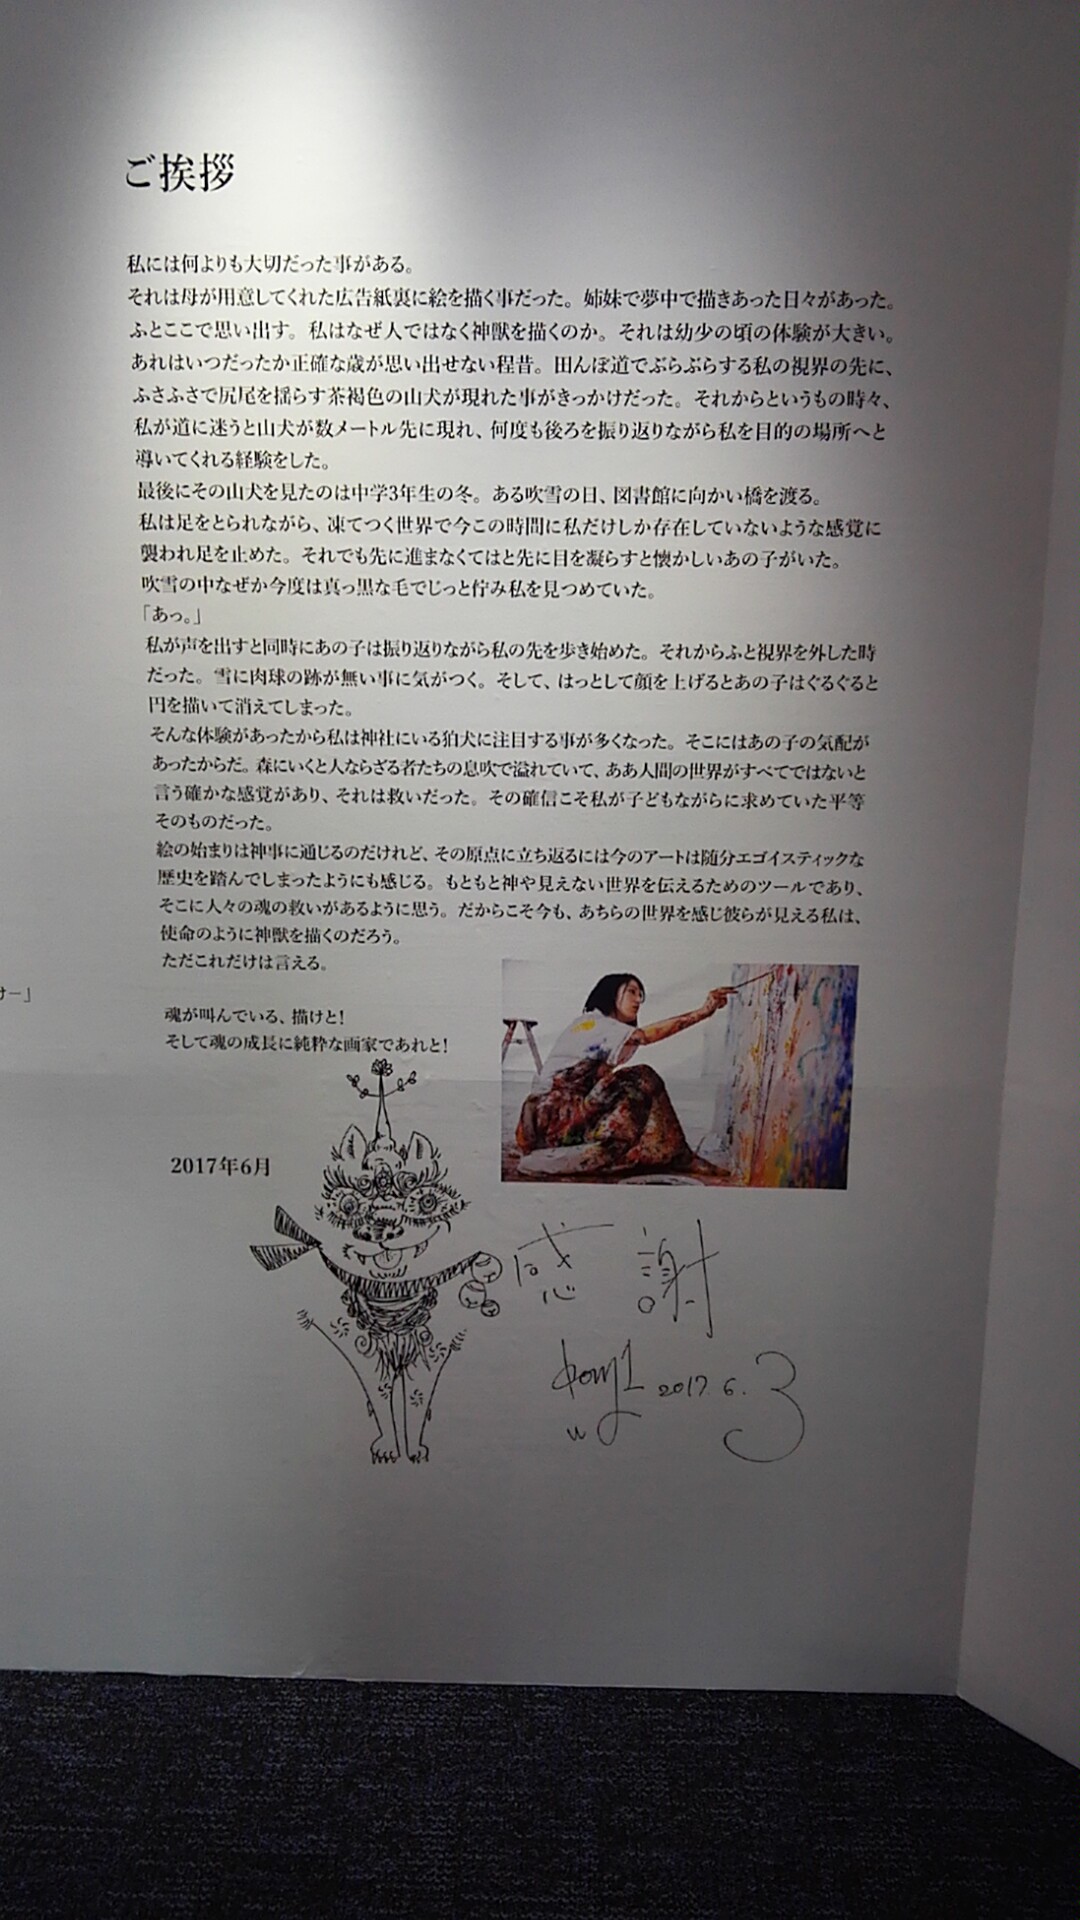 ご挨拶
私には何よりも大切だった事がある。
それは母が用意してくれた広告紙裏に絵を描く事だった。姉妹で夢中で描きあった日々があった。
ふとここで思い出す。私はなぜ人ではなく神獣を描くのか。それは幼少の頃の体験が大きい。
あれはいつだったか正確な歳が思い出せない程昔。田んぼ道でぶらぶらする私の視界の先に、
ふさふさで尻尾を揺らす茶褐色の山犬が現れた事がきっかけだった。それからというもの時々、
私が道に迷うと山犬が数メートル先に現れ、何度も後ろを振り返りながら私を目的の場所へと
導いてくれる経験をした。
最後にその山犬を見たのは中学3年生の冬。ある吹雪の日、図書館に向かい橋を渡る。
私は足をとられながら、凍てつく世界で今この時間に私だけしか存在していないような感覚に
襲われ足を止めた。それでも先に進まなくてはと先に目を凝らすと懐かしいあの子がいた。
吹雪の中なぜか今度は真っ黒な毛でじっと佇み私を見つめていた。
「あっ。」
私が声を出すと同時にあの子は振り返りながら私の先を歩き始めた。それからふと視界を外した時
だった。雪に肉球の跡が無い事に気がつく。そして、はっとして顔を上げるとあの子はぐるぐると
円を描いて消えてしまった。
そんな体験があったから私は神社にいる狛犬に注目する事が多くなった。そこにはあの子の気配が
あったからだ。森にいくと人ならざる者たちの息吹で溢れていて、ああ人間の世界がすべてではないと
言う確かな感覚があり、それは救いだった。その確信こそ私が子どもながらに求めていた平等
そのものだった。
絵の始まりは神事に通じるのだけれど、その原点に立ち返るには今のアートは随分エゴイスティックな
歴史を踏んでしまったようにも感じる。もともと神や見えない世界を伝えるためのツールであり、
そこに人々の魂の救いがあるように思う。だからこそ今も、あちらの世界を感じ彼らが見える私は、
使命のように神獣を描くのだろう。
ただこれだけは言える。
魂が叫んでいる、描けと!
そして魂の成長に純粋な画家であれと!
2017年6月
感謝
2017.6.3